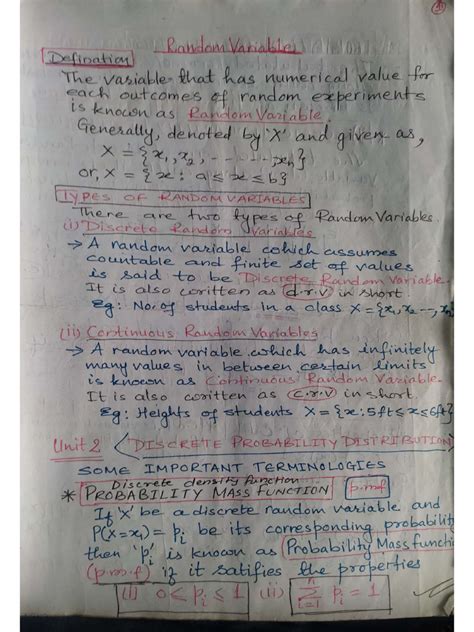 Random Variables
Defination
The variable that has numerical value for
each outcomes of random experiments
is known as Random Variable.
Generally, denoted by 'X' and given as,
X = {x₁, x₂, - - - - - -, xₙ}
or, X = {x : a ≤ x ≤ b}
TYPES OF RANDOM VARIABLES
There are two types of Random Variables.
(i) Discrete Random Variables
→ A random variable which assumes
countable and finite set of values
is said to be Discrete Random Variable.
It is also written as d.r.v in short.
Eg: No. of students in a class X = {x₁, x₂ --, xₙ}
(ii) Continuous Random Variables
→ A random variable which has infinitely
many values in between certain limits
is known as Continuous Random Variable.
It is also written as c.r.v in short.
Eg: Heights of students X = {x : 5ft ≤ x ≤ 6ft}
Unit 2 DISCRETE PROBABILITY DISTRIBUTION
SOME IMPORTANT TERMINOLOGIES
Discrete density function
* PROBABILITY MASS FUNCTION p.m.f
If 'X' be a discrete random variable and
P(X=xᵢ) = pᵢ be its corresponding probability
then 'pᵢ' is known as Probability Mass function
(p.m.f) if it satifies the properties
(i) 0 ≤ pᵢ ≤ 1 (ii) n∑i=1 pᵢ = 1